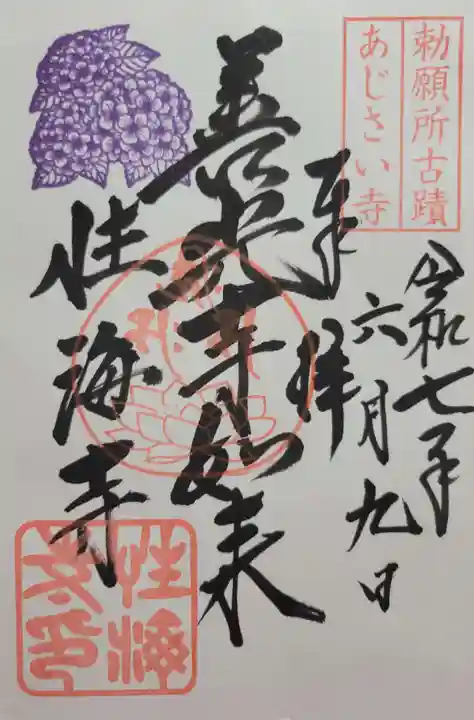 勅願所古蹟
あじさい寺
令和七年
六月九日
奉拝
善光寺如来
性海寺
性海
寺印